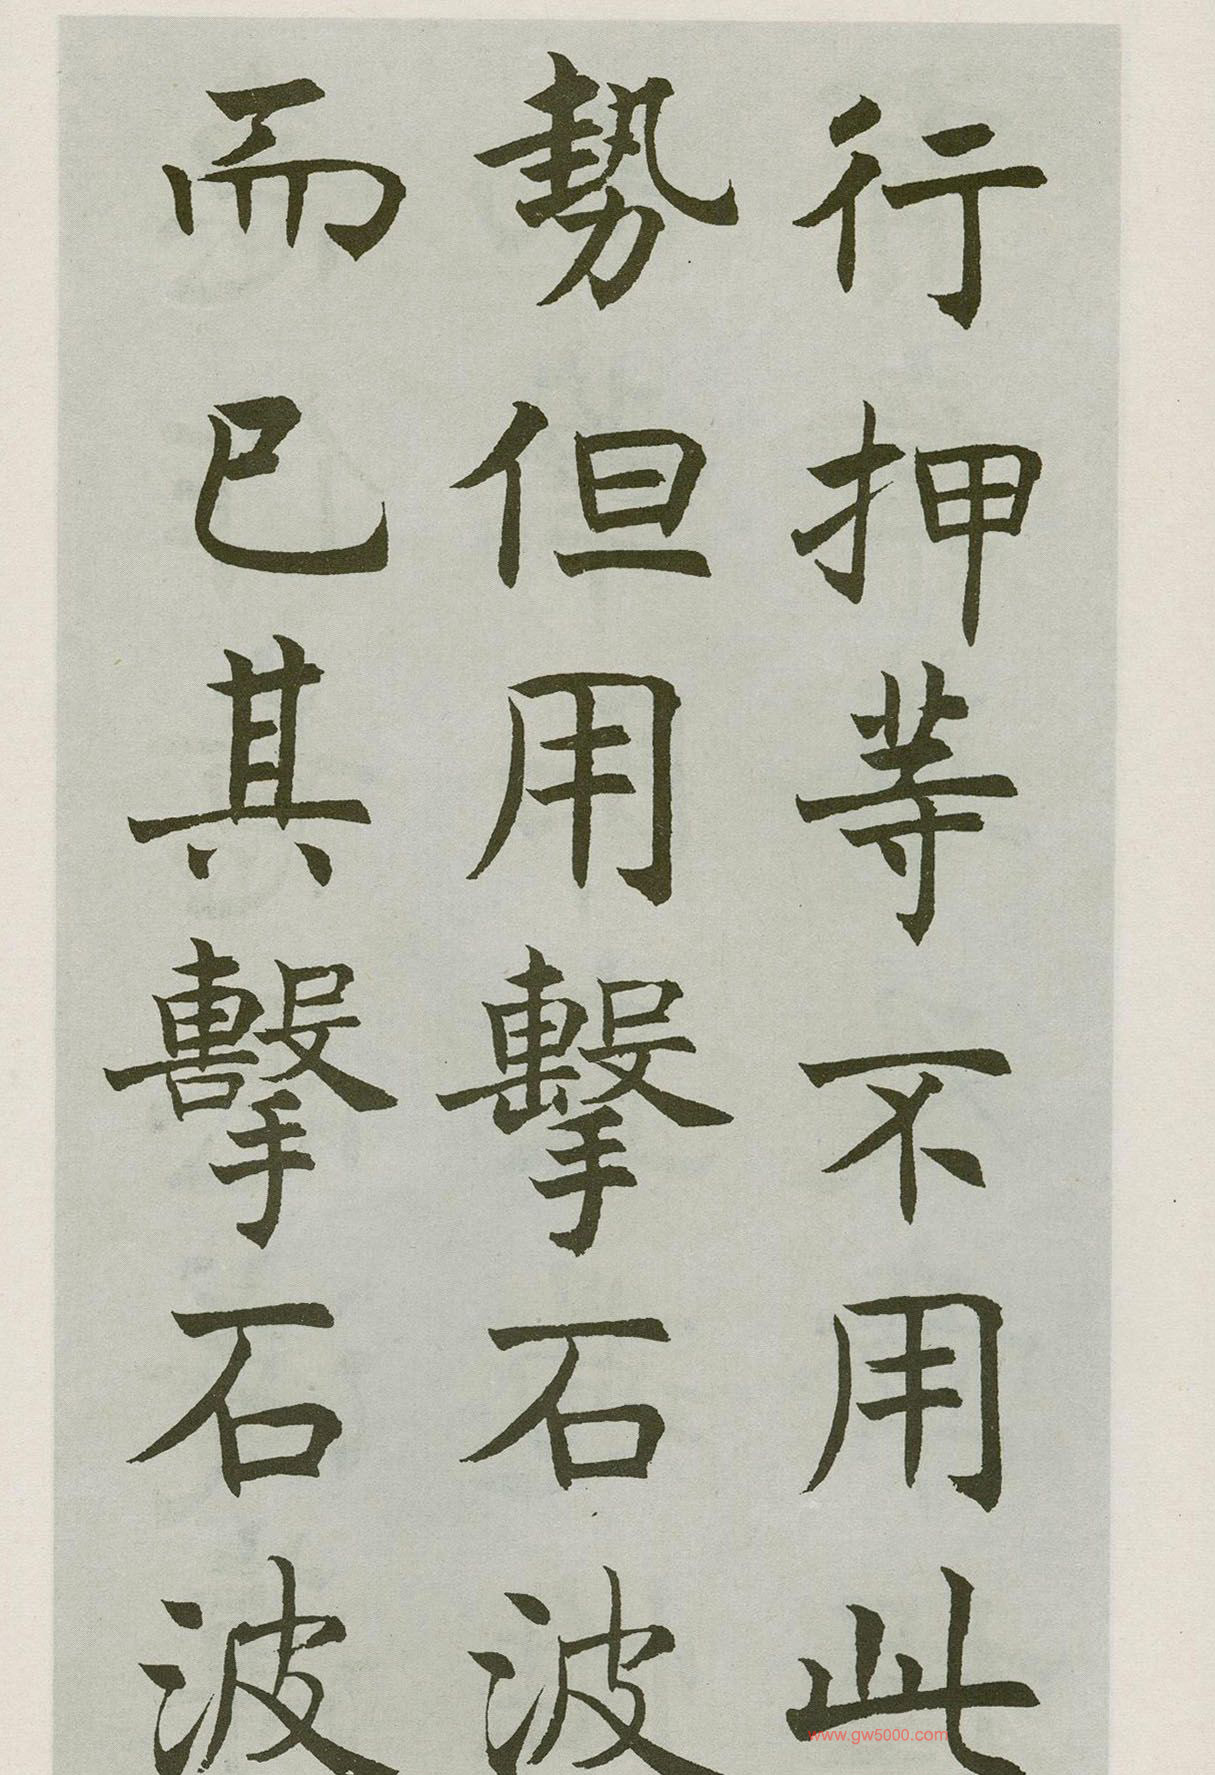 行押等不用此
勢但用擊石波
而已其擊石波
www.gw5000.com